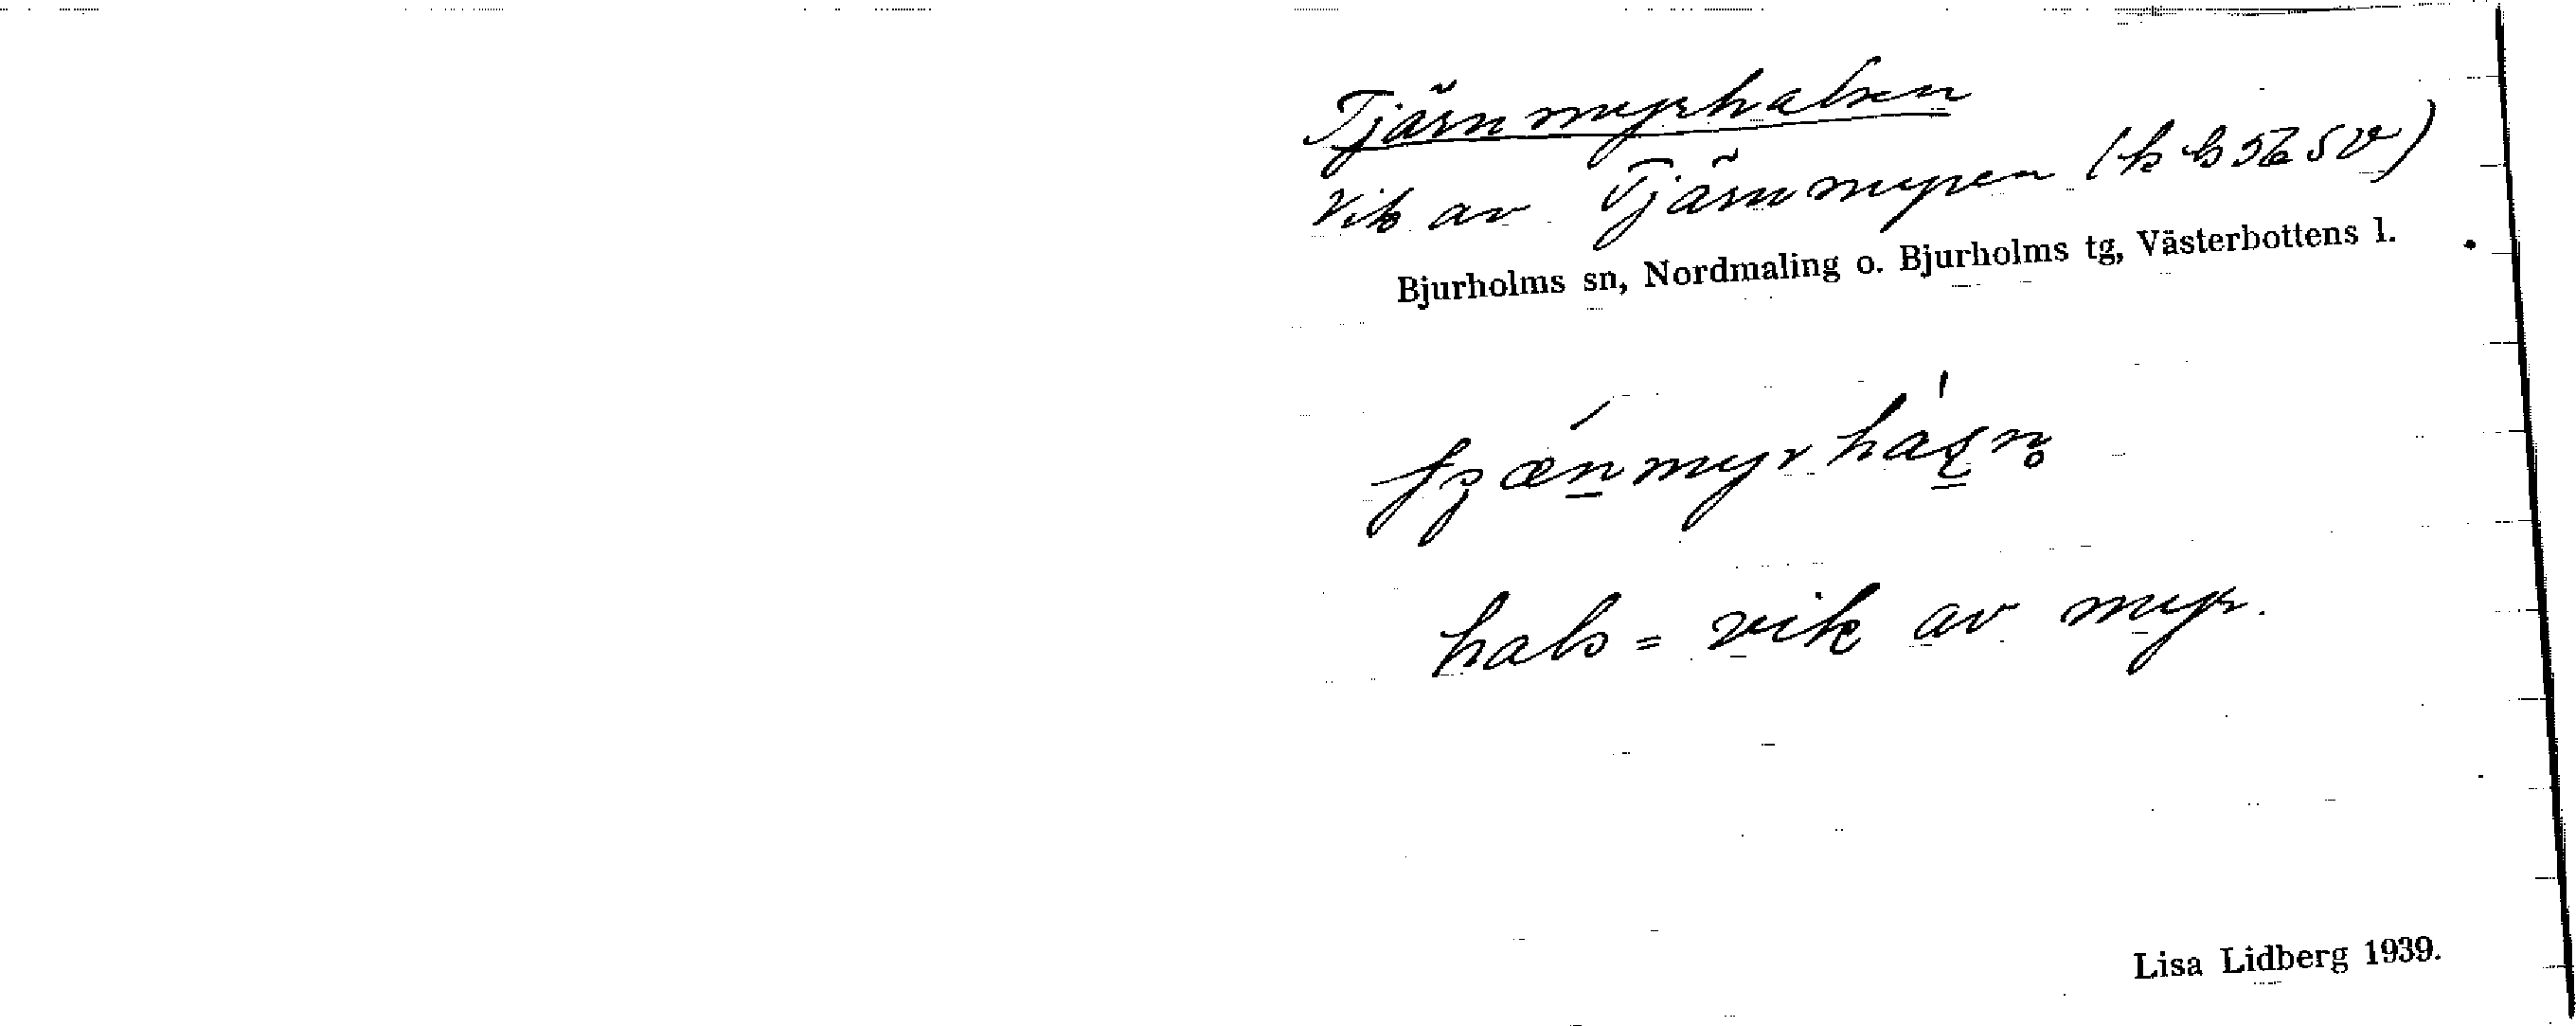 Tjärnmyrhalsen
Vik av Tjärnmyren (k b 56 5 v)
Bjurholms sn, Nordmaling o. Bjurholms tg, Västerbottens l.
hals = vik av myr.
Lisa Lidberg 1939.